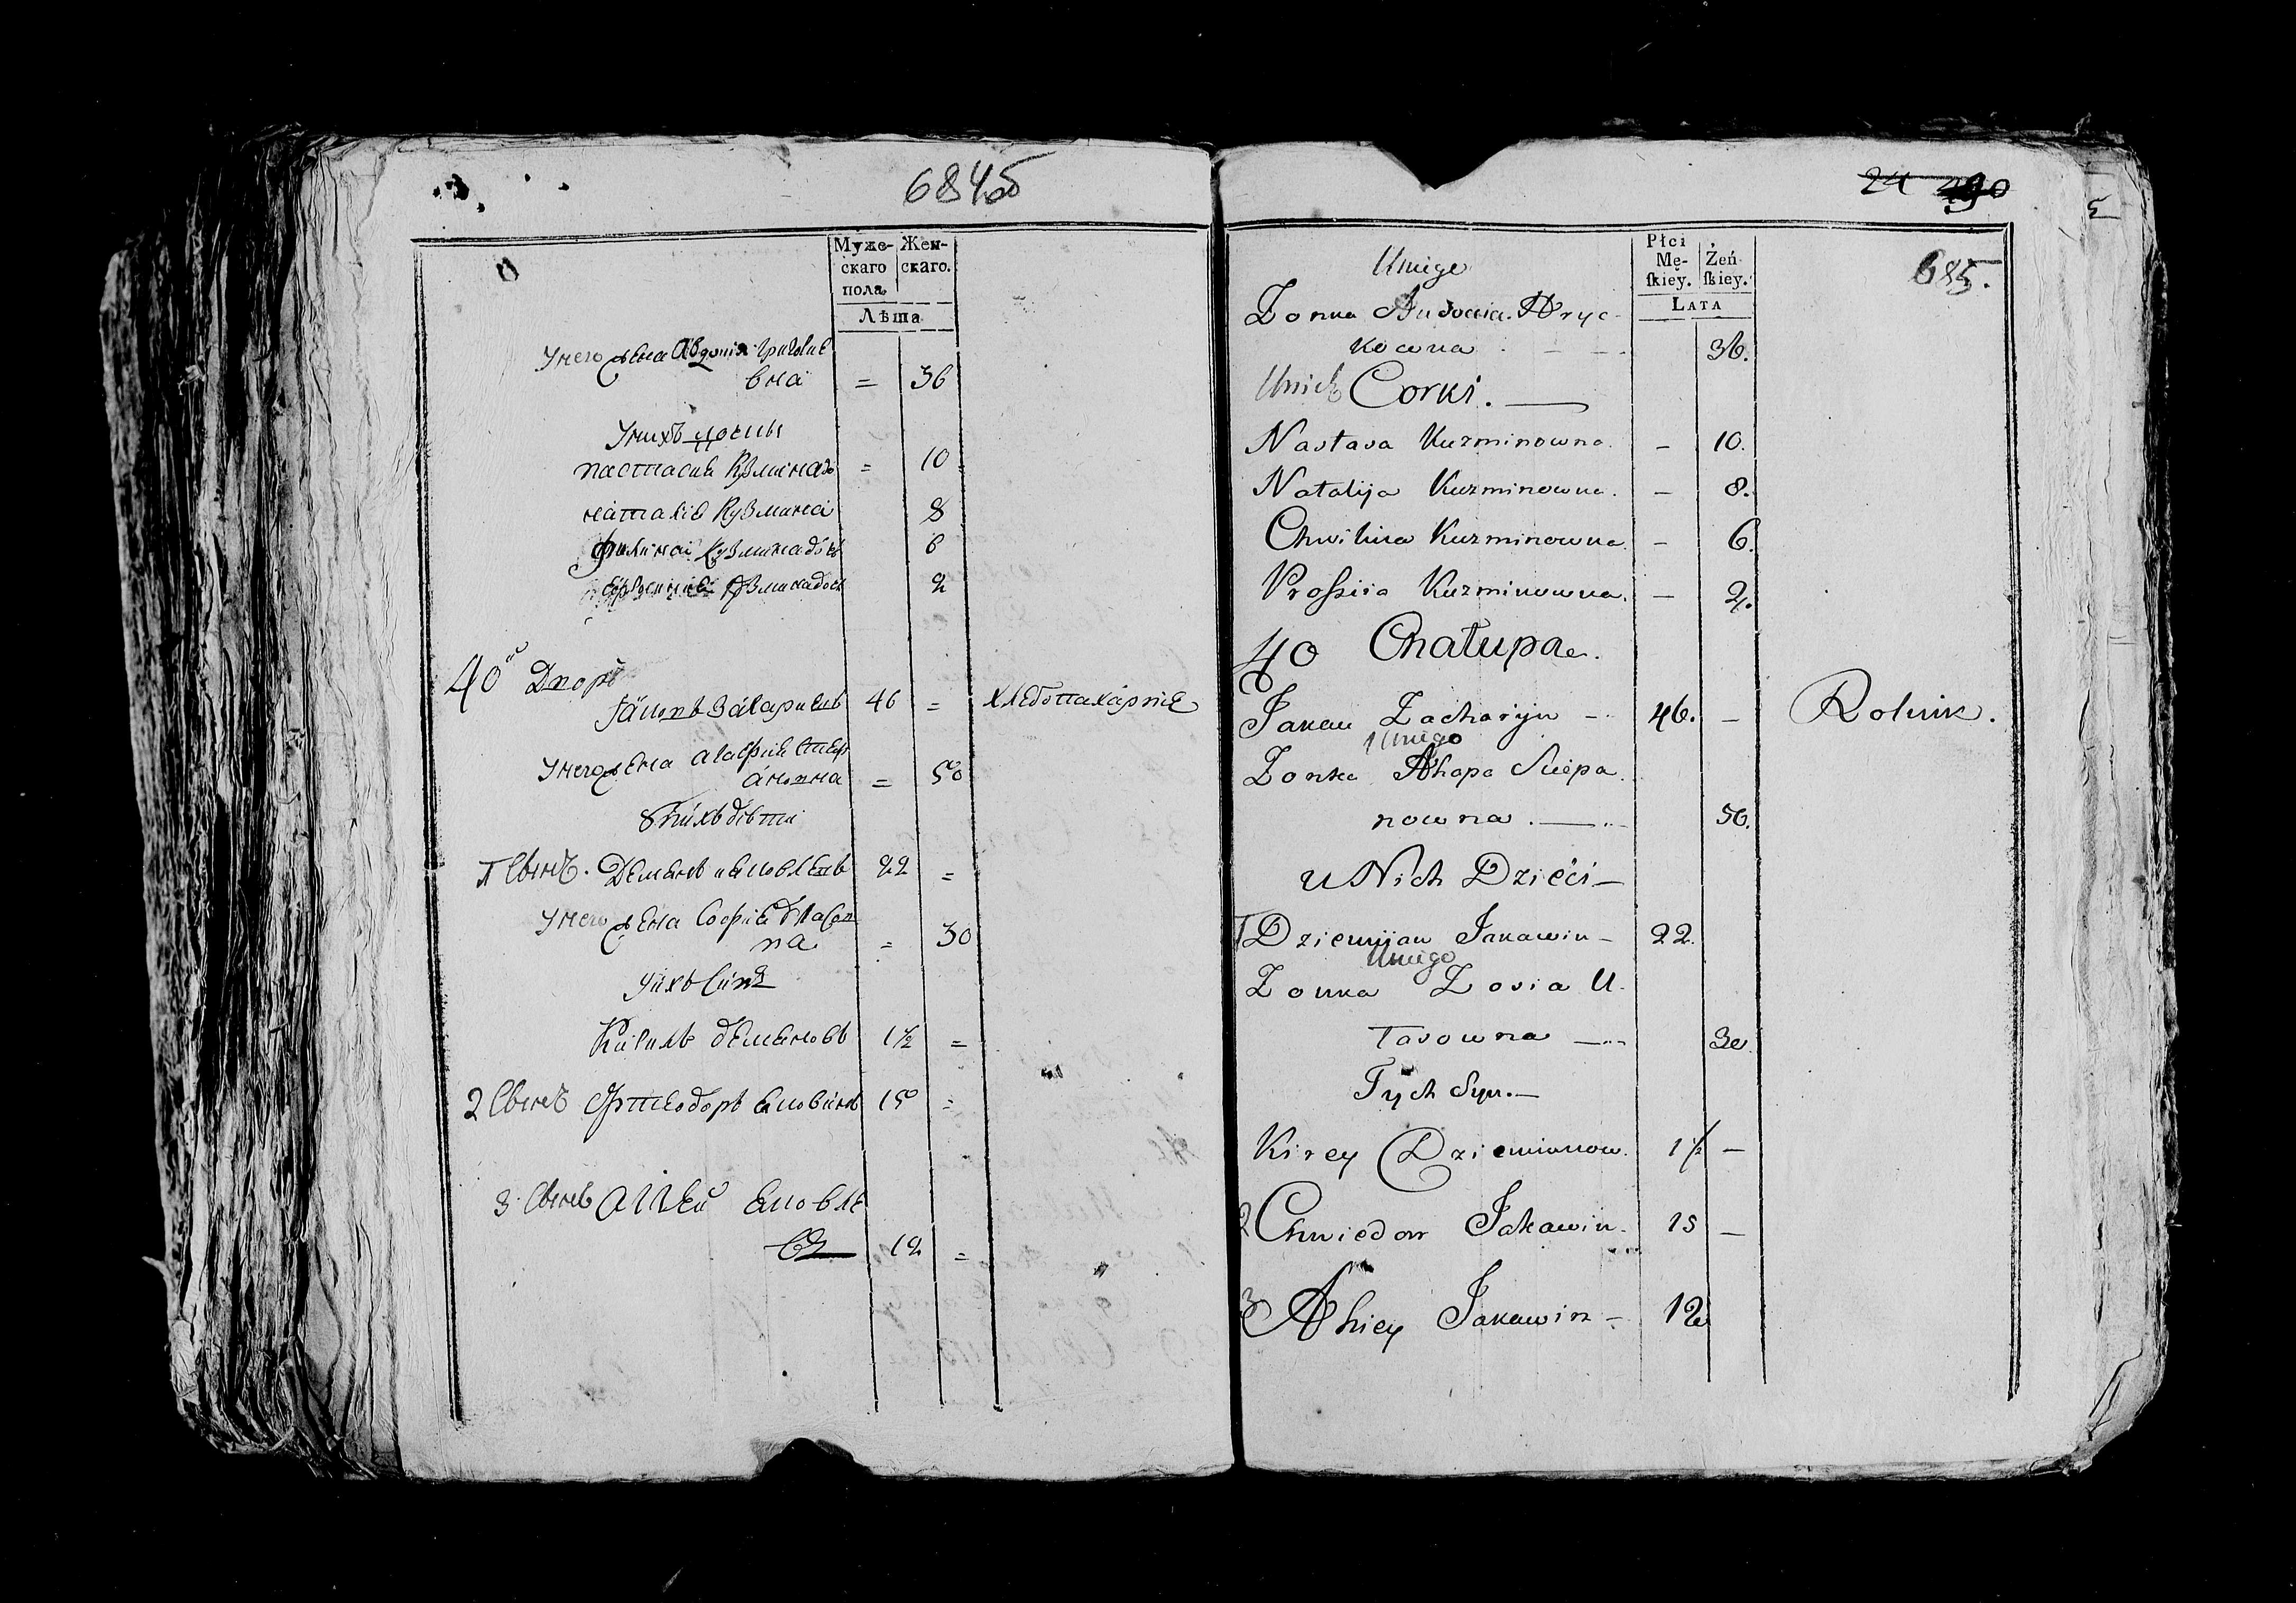 684об
Муже-
скаго
пола
Жен-
скаго.
Лѣта
Унего жена Авдотія Григорие
вна = 36
Унихъ дочны
настасиа Кузмина до = 10
наталіа Кузмина 8
Кузмина доч 6
Кузмина доч 2
40й Дворъ
Яковъ Захариевъ 46 = хлебопахарние
Унего жена Агафиа Степ
ановна = 50
Унихъ дѣти
1 Сынъ. Демянъ Яковлевъ 22 =
Унего жена Софиа Власов
на = 30
Уихъ Синъ
Демяновъ 1½ =
2 Сынъ Фтеодоръ 15 =
3 Сынъ Яковле
въ 12 =
24
685.
5
Płci
Mę-
skiey.
Żeń-
skiey.
LATA
Uniego
Żonka Audocia Hryc
kowna . – – – 36.
Unich Corki. —
Nastasa Kuzminowna. – 10.
Natalija Kuzminowna. – 8.
Chwilina Kuzminowna. – 6.
Prossija Kuzminowna. – 2.
40 Chałupa.
Jakau Zacharyn – 46. – Rolnik.
Uniego
Żonka Ahapa Sciepa
nowna. — 50.
u Nich Dzieci –
1 Dziemijan Jakawin – 22.
Uniego
Żonka Zosia U-
łasowna — 30
Tych Syn. –
Kirey Dziemianow. 1½ –
2 Chwiedor Jakawin. 15 –
3 Ahiey Jakawin – 12